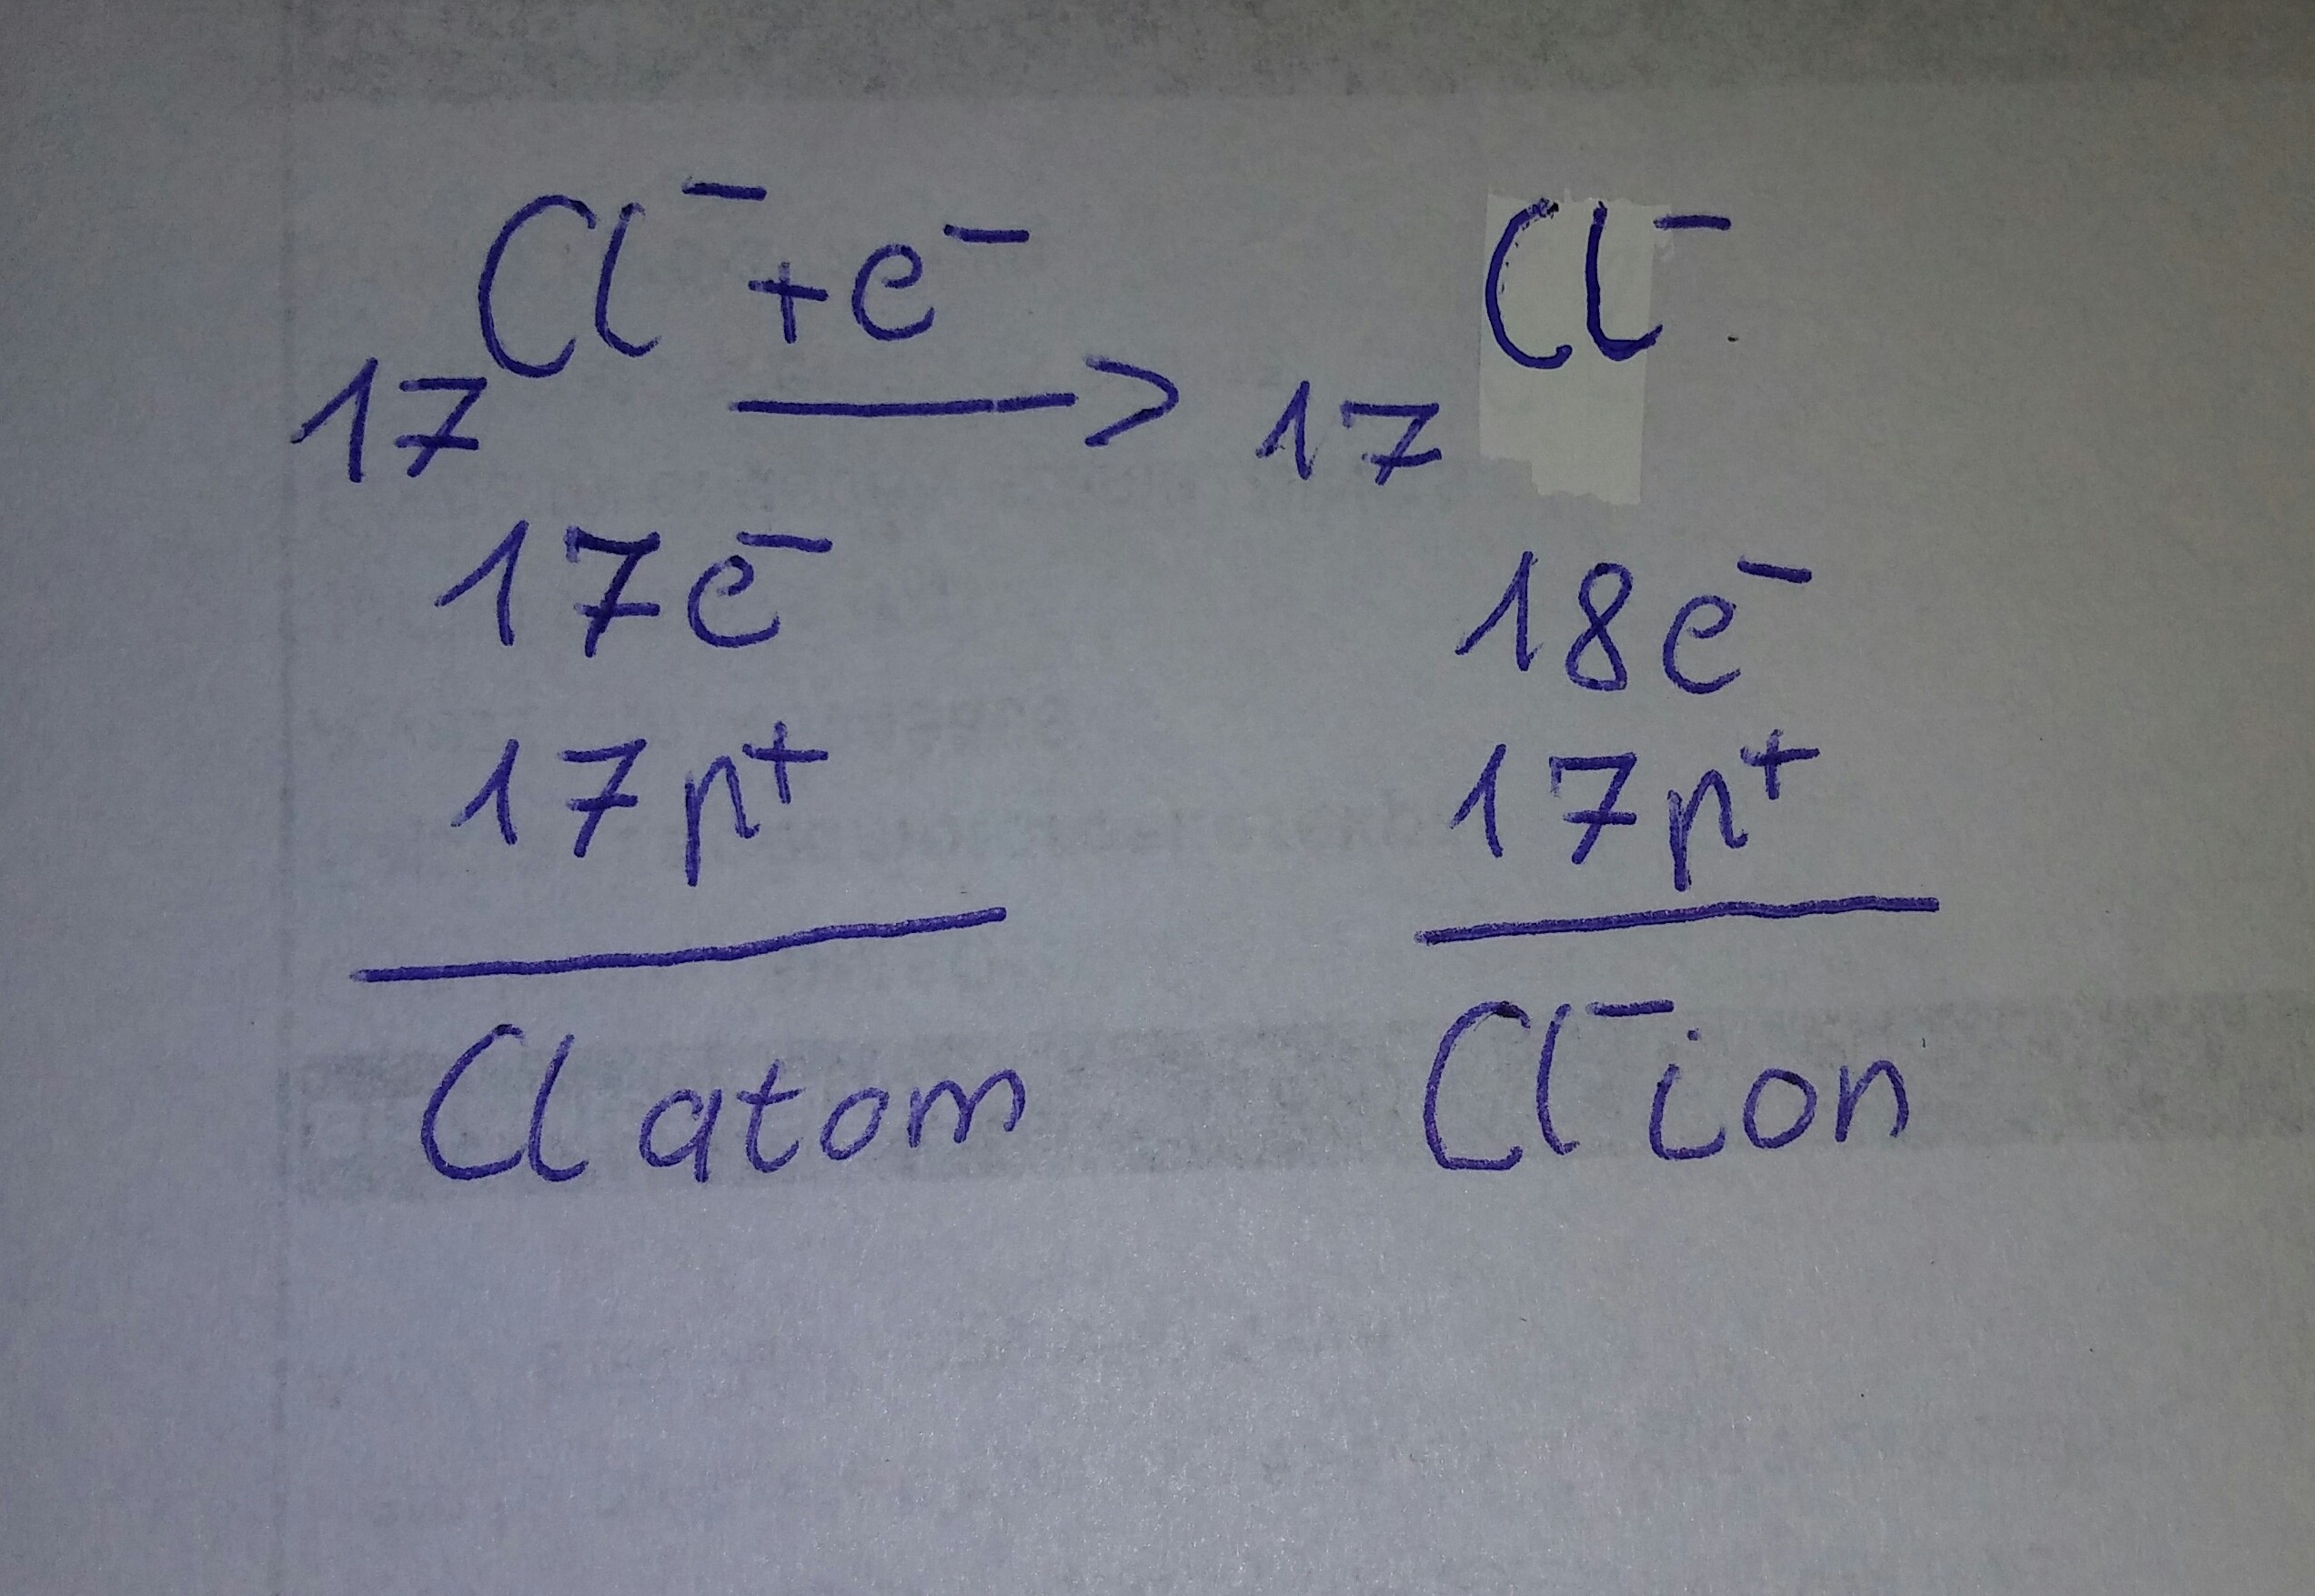 Cl⁻ + e⁻ Cl⁻
17 ⟶ 17
17e⁻ 18e⁻
17p⁺ 17p⁺
Cl atom Cl⁻ ion